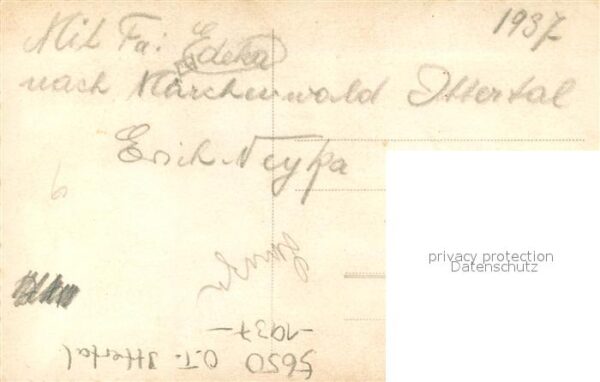 1937
Mit Fa: Edeka
nach Märchenwald Ittertal
Erich Neyka
privacy protection
Datenschutz
-1937-
5650 O.T. Ittertal